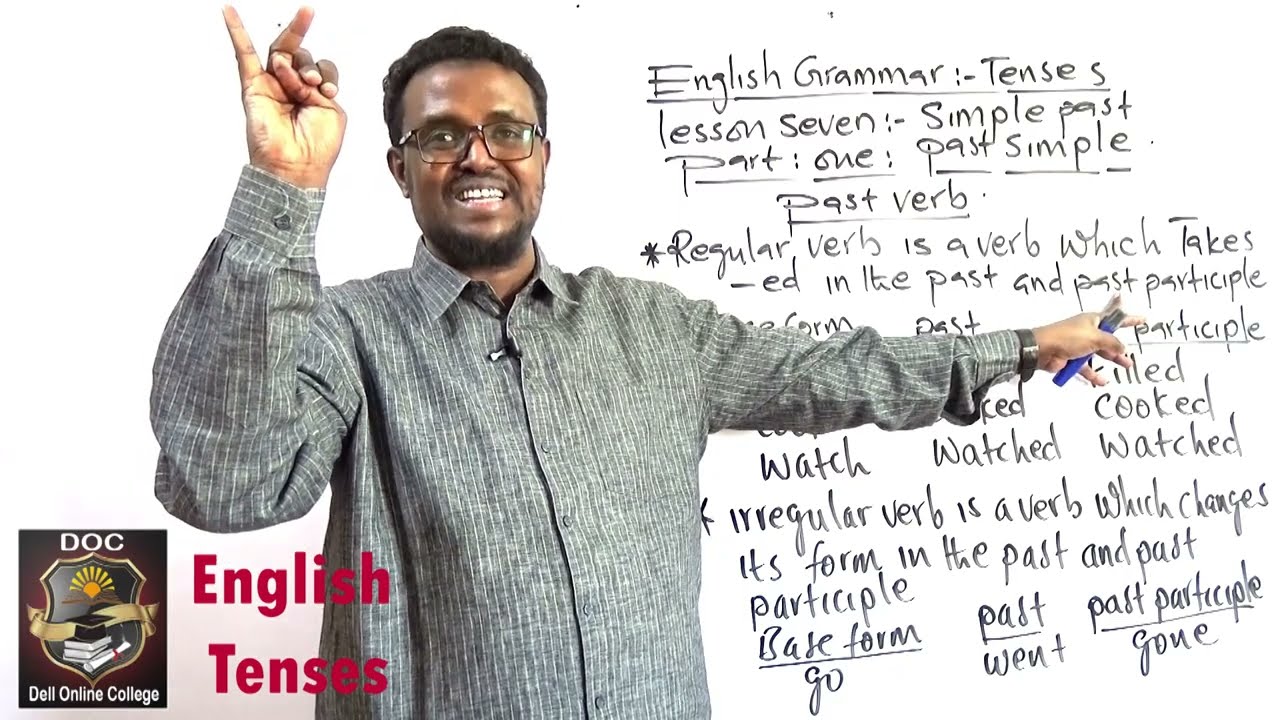 English Grammar:- Tenses
lesson seven:- Simple past
Part: one: past simple
Past verb.
*Regular verb is a verb which Takes
-ed in the past and past participle
form past participle
killed
cooked
watch watched watched
* irregular verb is a verb which changes
its form in the past and past
participle
Base form past past participle
go went gone
DOC
Dell Online College
English
Tenses